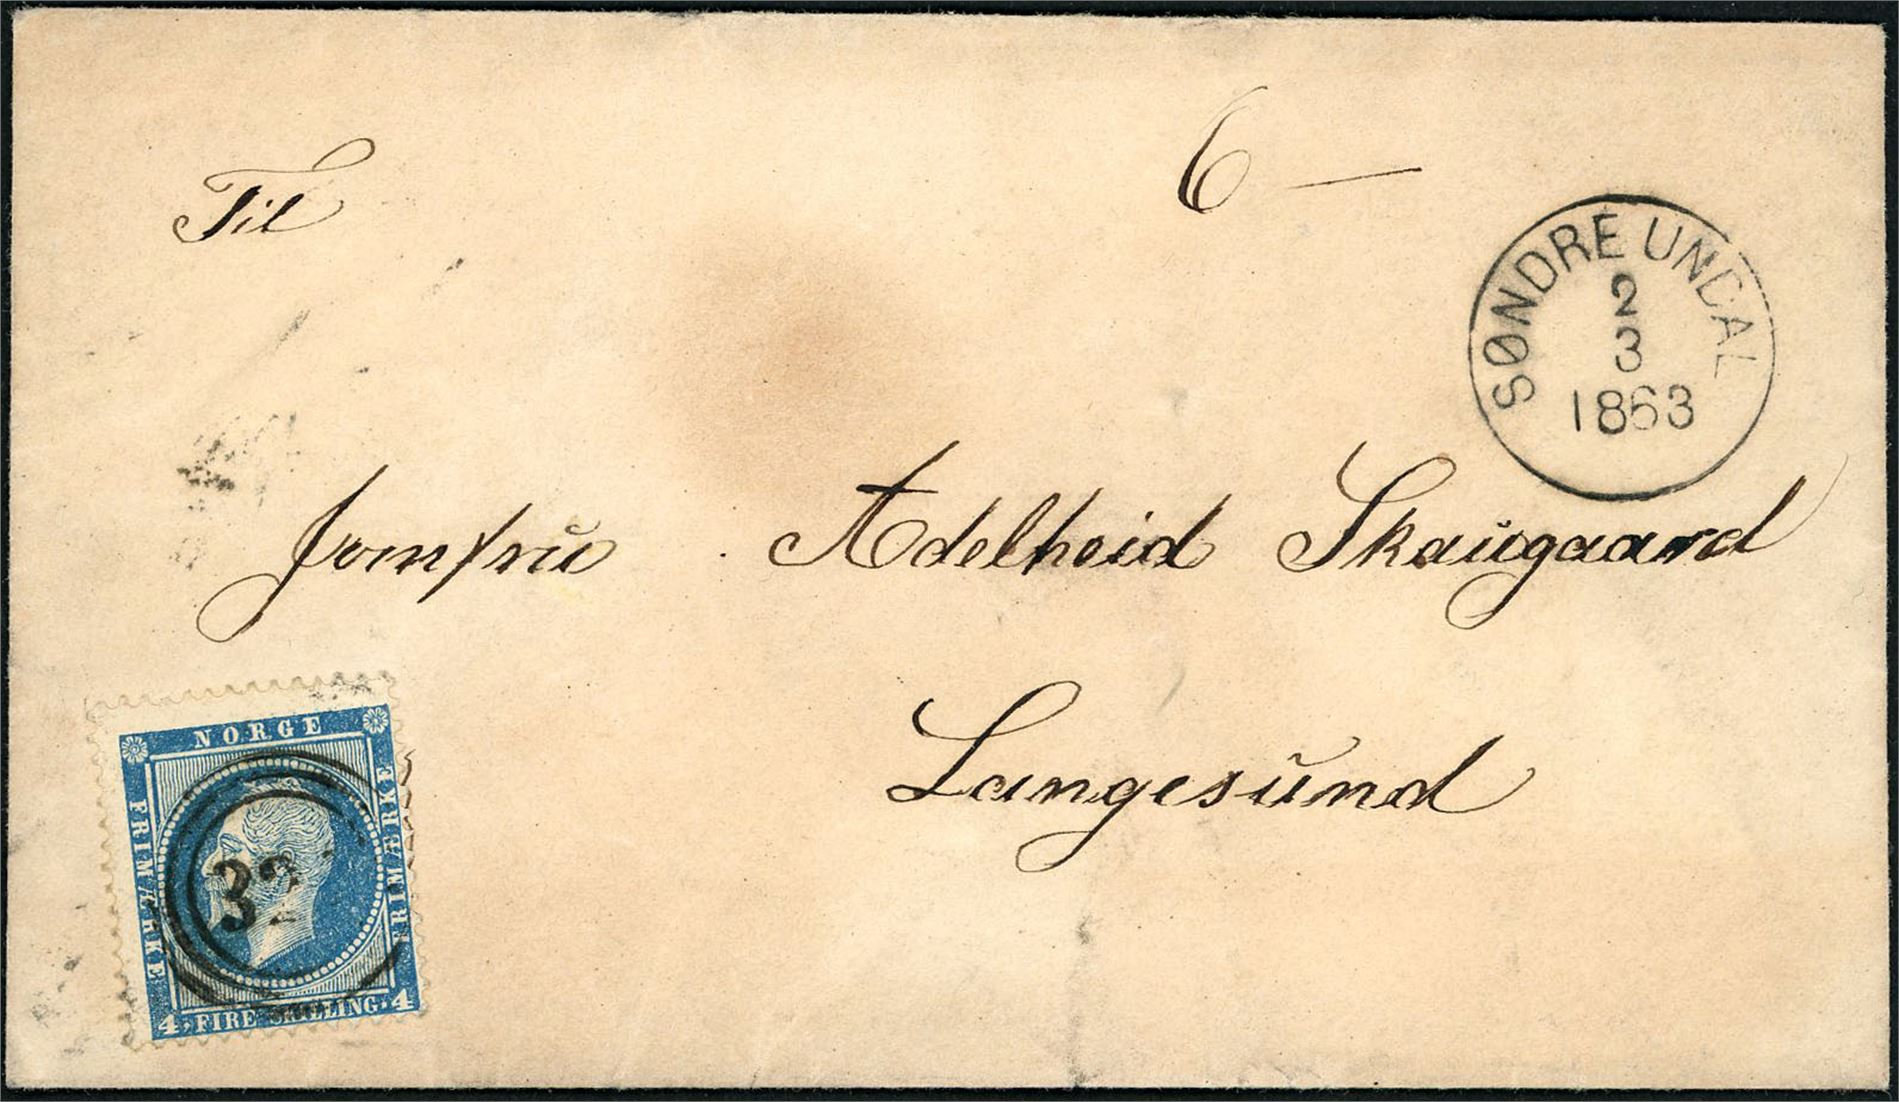 Til
6 —
SØNDRE UNDAL
2
3
1863
Jomfru Adelheid Skaugaard
Langesund
NORGE
FRIMÆRKE
FRIMÆRKE
4 FIRE SKILLING 4